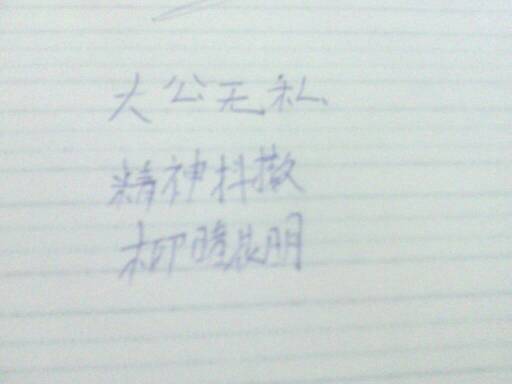 大公无私
精神抖擞
柳暗花明